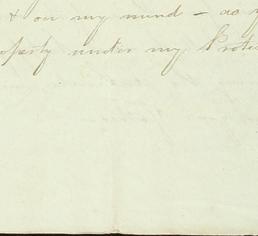 & on my mind - as y
operty under my Prote